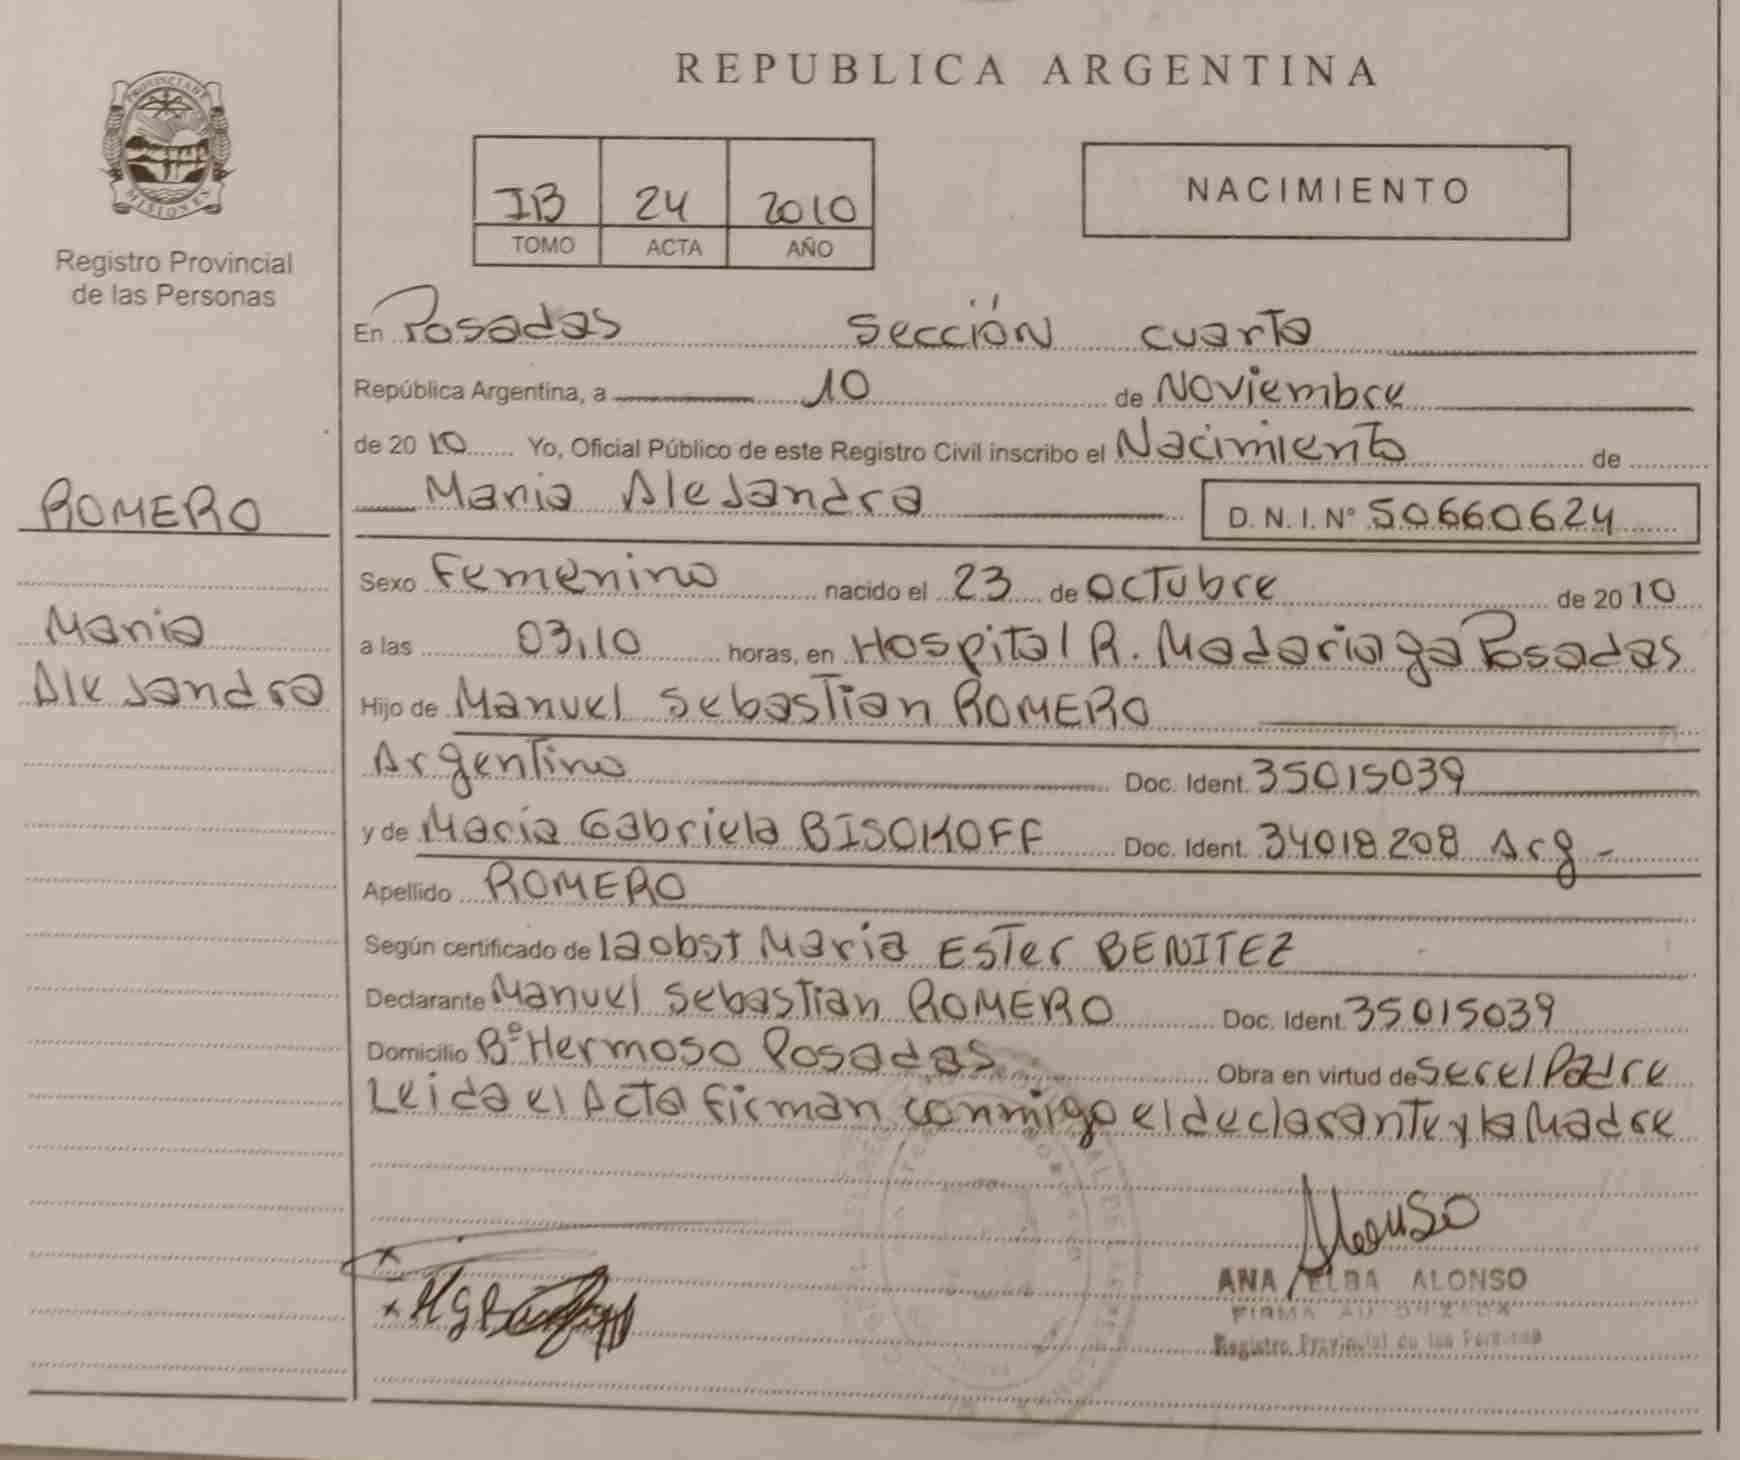 REPUBLICA ARGENTINA
PROVINCIA DE
MISIONES
Registro Provincial
de las Personas
IB 24 2010
TOMO ACTA AÑO
NACIMIENTO
En Posadas sección cuarta
República Argentina, a 10 de Noviembre
de 2010 Yo, Oficial Público de este Registro Civil inscribo el Nacimiento de
Maria Alejandra D.N.I. Nº 50660624
ROMERO
Maria
Alejandra
Sexo Femenino nacido el 23 de octubre de 2010
a las 03,10 horas, en Hospital R. Madariaga Posadas
Hijo de Manuel Sebastian ROMERO
Argentino Doc. Ident. 35015039
y de Maria Gabriela BISOKOFF Doc. Ident. 34018208 Arg-
Apellido ROMERO
Según certificado de la obst Maria Ester BENITEZ
Declarante Manuel Sebastian ROMERO Doc. Ident. 35015039
Domicilio Bº Hermoso Posadas Obra en virtud de ser el Padre
Leida el Acta firman conmigo el declarante y la Madre
Alonso
ANA ELBA ALONSO
FIRMA AUTORIZADA
Registro Provincial de las Personas